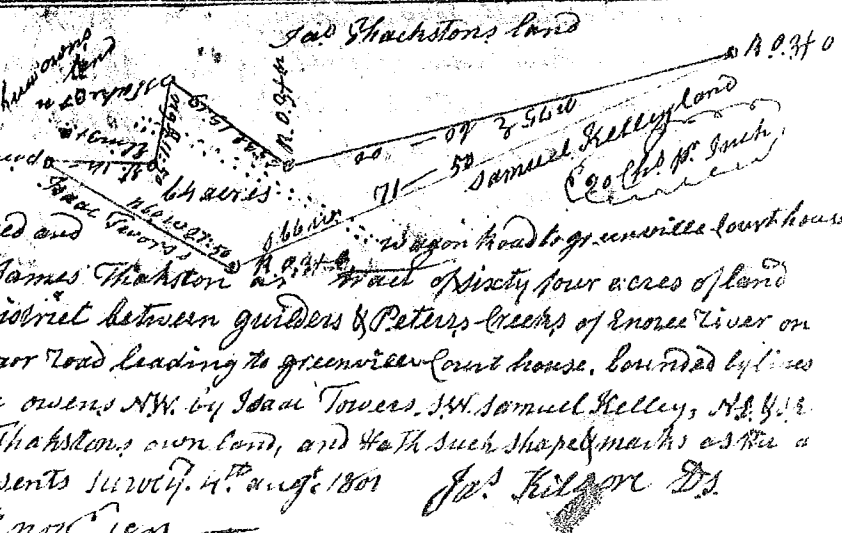 Jas Thackstons land
R.O. 3x0
owens
land
R.O. 3x0
N 55 E 60 — 00
Samuel Kelley land
(20 Chs pr Inch
64 acres
71 — 50
Isaac Towers
N60W 27:50
S 66 W
R.O. 3x0
Wagon Road to greenville Courthouse
ed and
James Thakston a tract of sixty four acres of land
istrict between guilders & Peters Creeks of Enoree River on
road leading to greenville Court house. bounded by lines
owens NW. by Isaac Towers, SW. Samuel Kelley, NE & SE
Thakstons own land, and Hath such shape & marks as the a
sents survey. 4th augt. 1801 Jas Kilgore DS